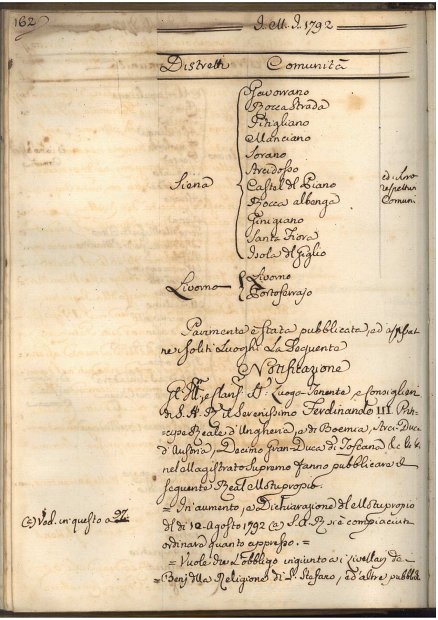 162
I. M. I. 1792
Distretti Comunità
Gavorrano
Rocca Strada
Pitigliano
Manciano
Sorano
Arcidosso
Siena Castel del Piano ed. loro
Rocca albenga respettive
Cinigiano Comun.
Santa Fiora
Isola del Giglio
Livorno Livorno
Portoferrajo
Parimente è stata pubblicata, ed affissa
ne i soliti Luoghi La Seguente
Notificazione
Luogo-Tenente, e Consiglieri
di S. A. R. il Serenissimo Ferdinando III. Prin-
cipe Reale d'Ungheria, e di Boemia, Arci-Duca
d'Austria, Decimo Gran-Duca di Toscana &c. &c.
nel Magistrato Supremo fanno pubblicare il
seguente Real Motuproprio
= In aumento, e Dichiarazione del Motuproprio
(a) Ved. in questo a 97. del di 12. Agosto 1792 (a) S. A. R. si è compiaciuta
ordinare quanto appresso. =
= Vuole che l'obbligo ingiunto a i Livellarj de
Beni della Religione di S. Stefano, e d'altre pubblic